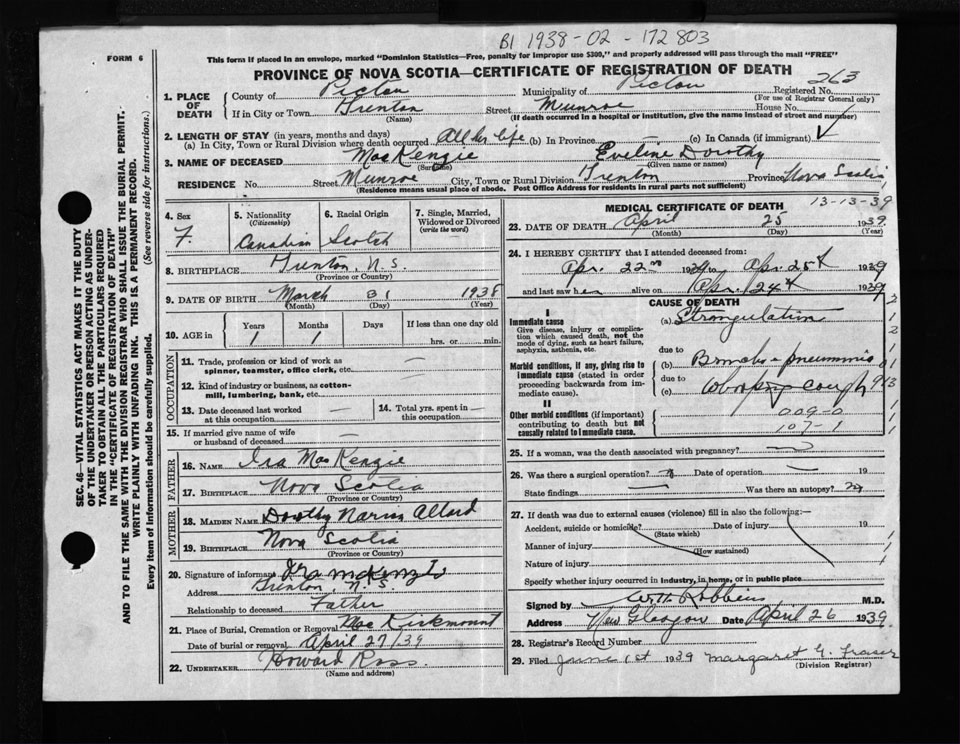 B1 1938-02-172803
FORM 6
This form if placed in an envelope, marked "Dominion Statistics—Free, penalty for improper use $300," and properly addressed will pass through the mail "FREE"
PROVINCE OF NOVA SCOTIA—CERTIFICATE OF REGISTRATION OF DEATH
263
1. PLACE OF DEATH
County of Pictou Municipality of Pictou Registered No.
(For use of Registrar General only)
If in City or Town Trenton Street Munroe House No.
(Name) (If death occurred in a hospital or institution, give the name instead of street and number)
2. LENGTH OF STAY (in years, months and days)
(a) In City, Town or Rural Division where death occurred All her life (b) In Province (c) In Canada (if immigrant)
3. NAME OF DECEASED MacKenzie Eveline Dorothy
(Surname) (Given name or names)
RESIDENCE No. Street Munroe City, Town or Rural Division Trenton Province Nova Scotia
(Residence means usual place of abode. Post Office Address for residents in rural parts not sufficient)
SEC. 46—VITAL STATISTICS ACT MAKES IT THE DUTY
OF THE UNDERTAKER OR PERSON ACTING AS UNDER-
TAKER TO OBTAIN ALL THE PARTICULARS REQUIRED
IN THE "CERTIFICATE OF REGISTRATION OF DEATH"
AND TO FILE THE SAME WITH THE DIVISION REGISTRAR WHO SHALL ISSUE THE BURIAL PERMIT.
WRITE PLAINLY WITH UNFADING INK. THIS IS A PERMANENT RECORD.
Every item of information should be carefully supplied. (See reverse side for instructions.)
4. Sex
F.
5. Nationality
(Citizenship)
Canadian
6. Racial Origin
Scotch
7. Single, Married,
Widowed or Divorced
(write the word)
—
8. BIRTHPLACE Trenton, N.S.
(Province or Country)
9. DATE OF BIRTH March 31 1938
(Month) (Day) (Year)
10. AGE in
Years Months Days If less than one day old
1 1 hrs. or min.
OCCUPATION
11. Trade, profession or kind of work as
spinner, teamster, office clerk, etc. —
12. Kind of industry or business, as cotton-
mill, lumbering, bank, etc. —
13. Date deceased last worked
at this occupation —
14. Total yrs. spent in
this occupation —
15. If married give name of wife
or husband of deceased —
FATHER
16. NAME Ira MacKenzie
17. BIRTHPLACE Nova Scotia
(Province or Country)
MOTHER
18. MAIDEN NAME Dorothy Allard
19. BIRTHPLACE Nova Scotia
(Province or Country)
20. Signature of informant Ira
Address Trenton N.S.
Relationship to deceased Father
21. Place of Burial, Cremation or Removal Kirkmount
Date of burial or removal April 27/39
22. UNDERTAKER Howard Ross.
(Name and address)
MEDICAL CERTIFICATE OF DEATH 13-13-39
23. DATE OF DEATH April 25 1939
(Month) (Day) (Year)
24. I HEREBY CERTIFY that I attended deceased from:
Apr. 22nd 1939 to Apr. 25th 1939
and last saw her alive on Apr. 24th 1939
CAUSE OF DEATH
I
Immediate cause (a) Strangulation
Give disease, injury or complica-
tion which caused death, not the
mode of dying, such as heart failure,
asphyxia, asthenia, etc.
due to
Morbid conditions, if any, giving rise to
immediate cause (stated in order
proceeding backwards from im-
mediate cause).
(b) Broncho-pneumonia
due to
(c) Whooping cough
II
Other morbid conditions (if important)
contributing to death but not
causally related to immediate cause.
009-0
107-1
25. If a woman, was the death associated with pregnancy? —
26. Was there a surgical operation? Date of operation — 19
State findings — Was there an autopsy? no
27. If death was due to external causes (violence) fill in also the following:—
Accident, suicide or homicide? Date of injury 19
(State which)
Manner of injury
(How sustained)
Nature of injury
Specify whether injury occurred in industry, in home, or in public place
Signed by W.H. Robbins M.D.
Address New Glasgow Date April 26 1939
28. Registrar's Record Number
29. Filed June 1st 1939 Margaret G. Fraser
(Division Registrar)